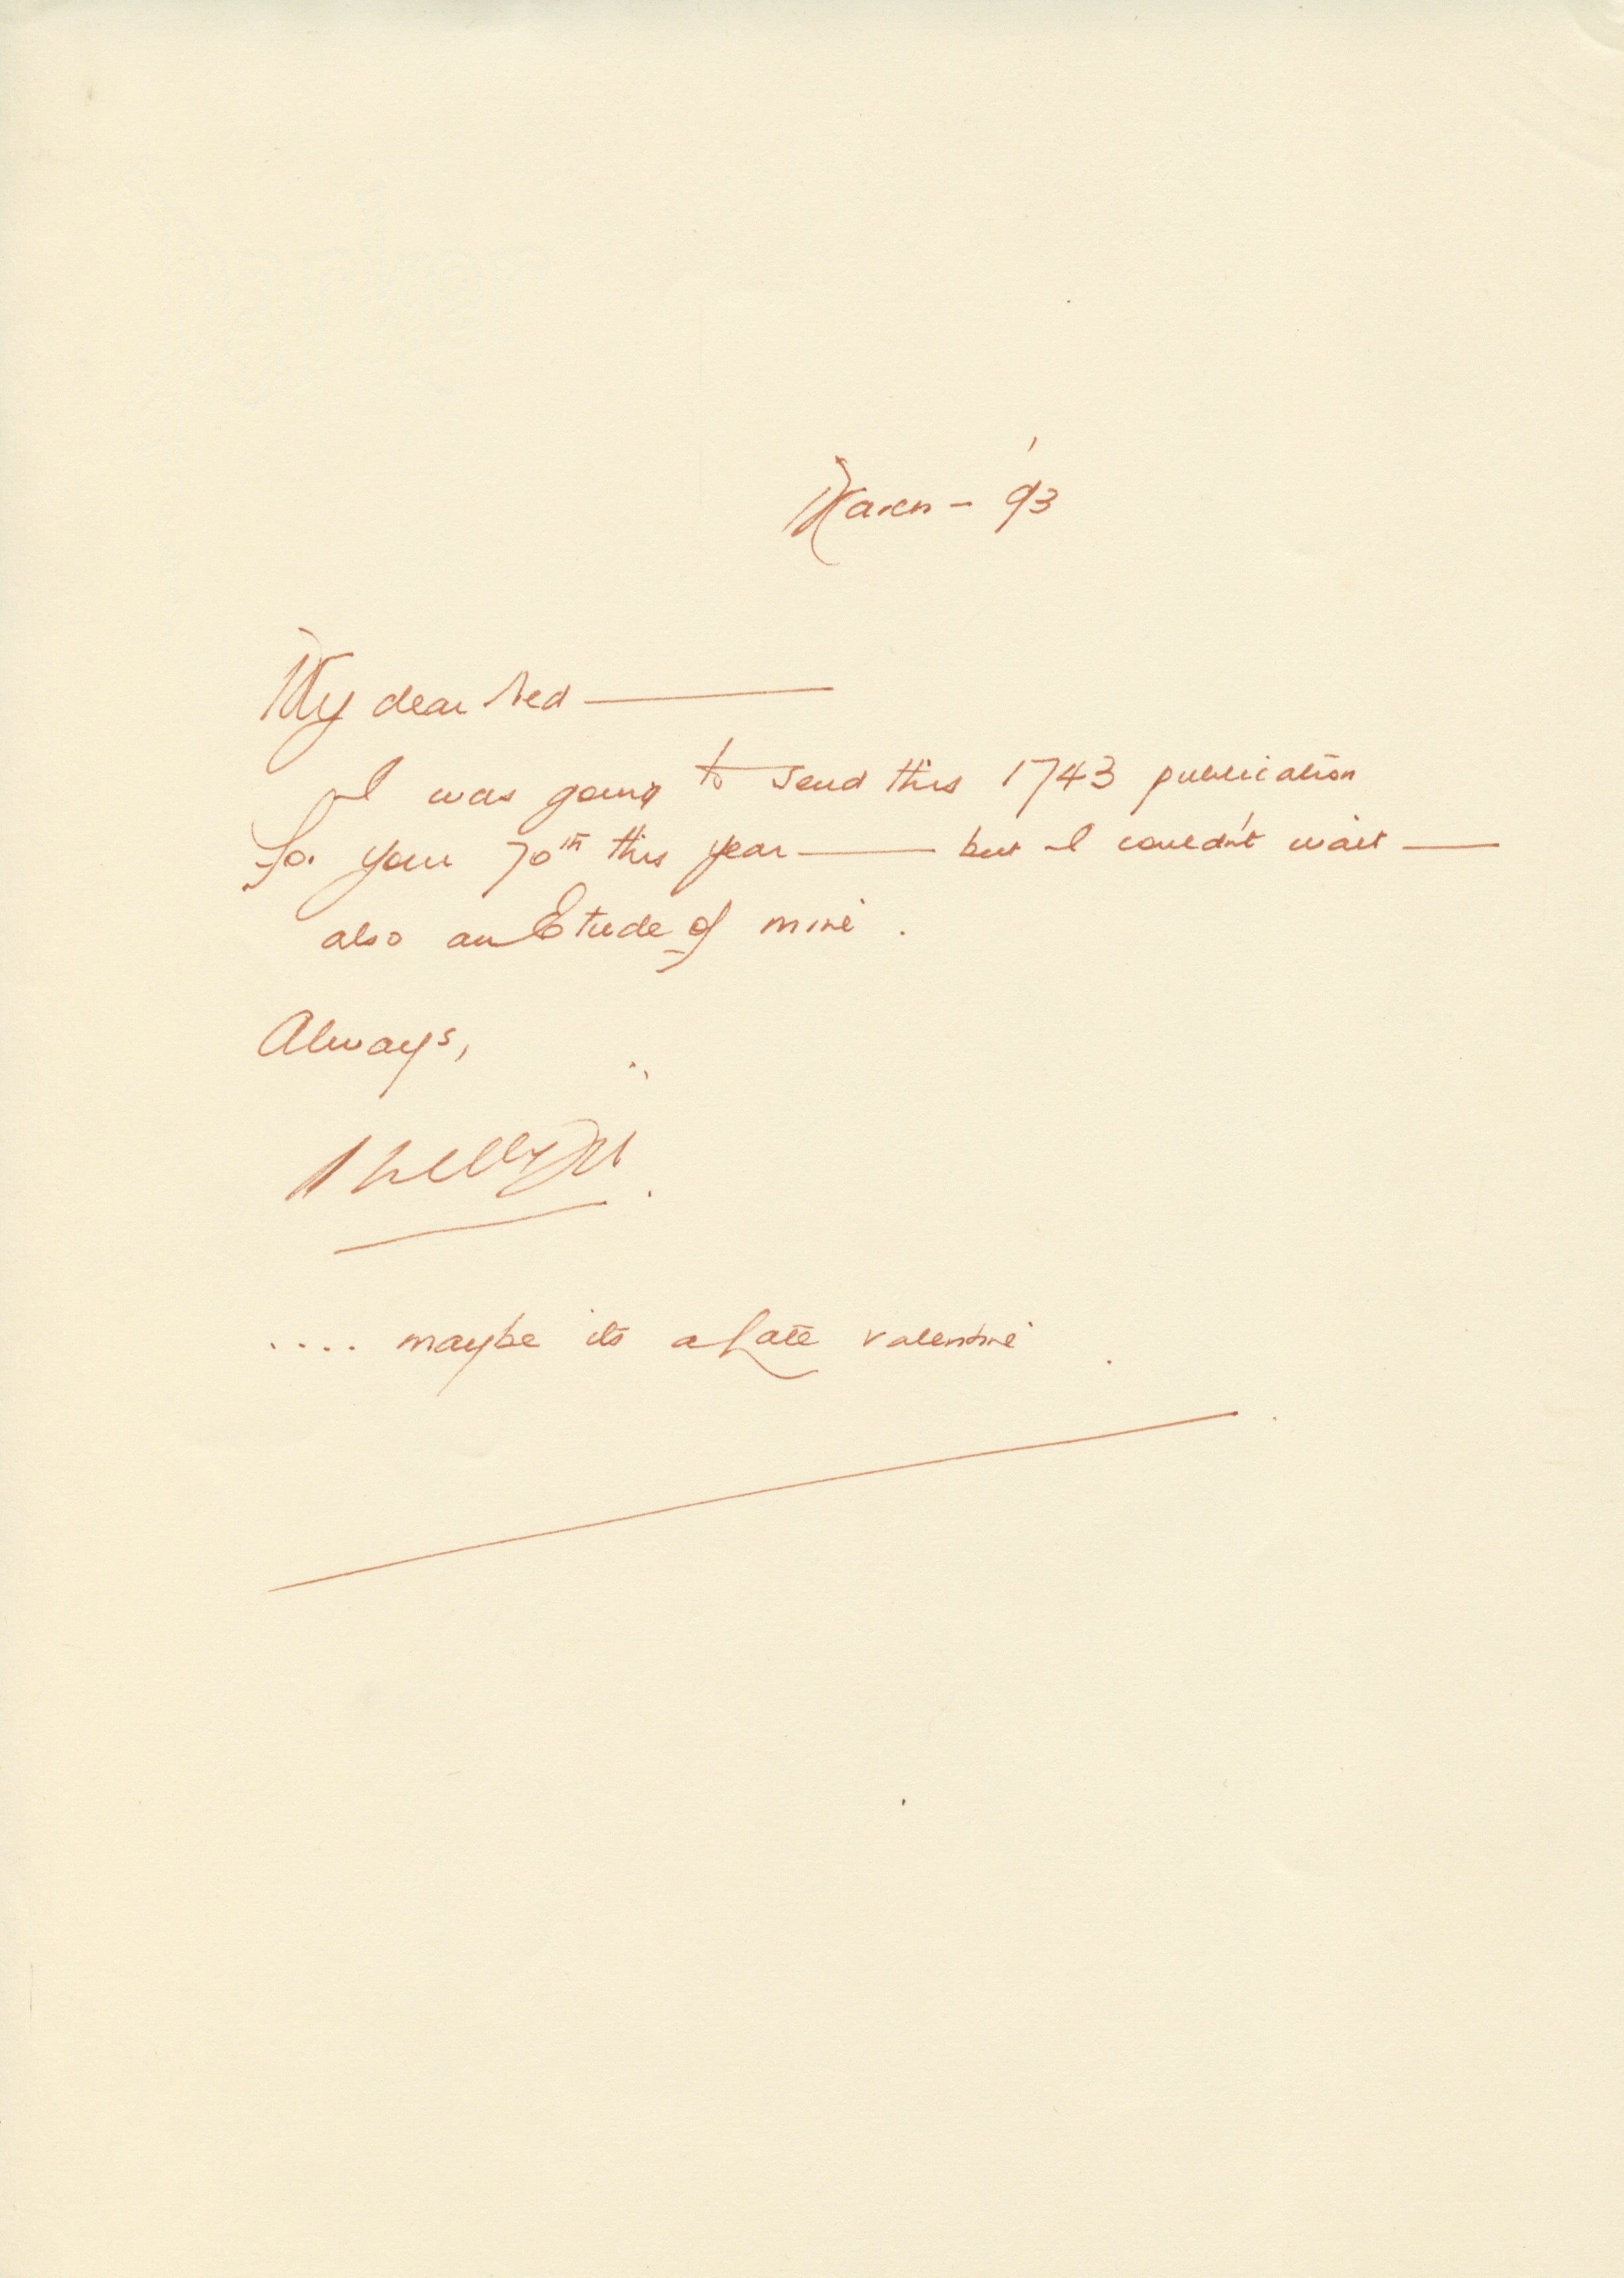 March - '93
My dear Ned —
I was going to send this 1743 publication
for your 70th this year — but I couldn't wait —
also an Etude of mine .
Always,
.... maybe its a Late valentine .